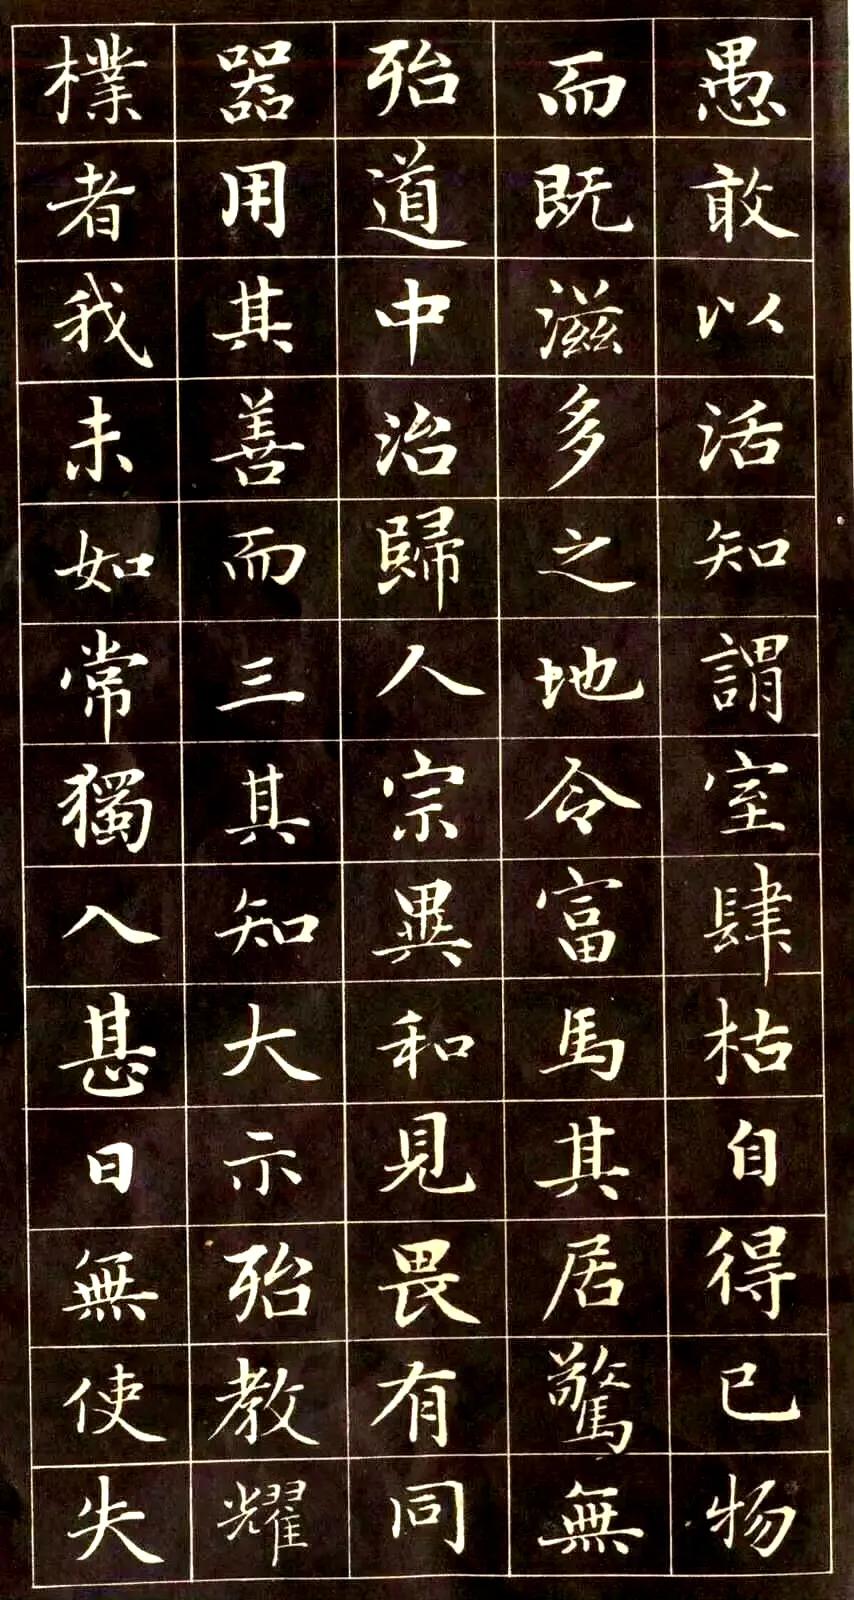 愚敢以活知謂室肆枯自得已物
而既滋多之地令富馬其居驚無
殆道中治歸人宗異和見畏有同
器用其善而三其知大示殆教耀
樸者我未如常獨入甚日無使失